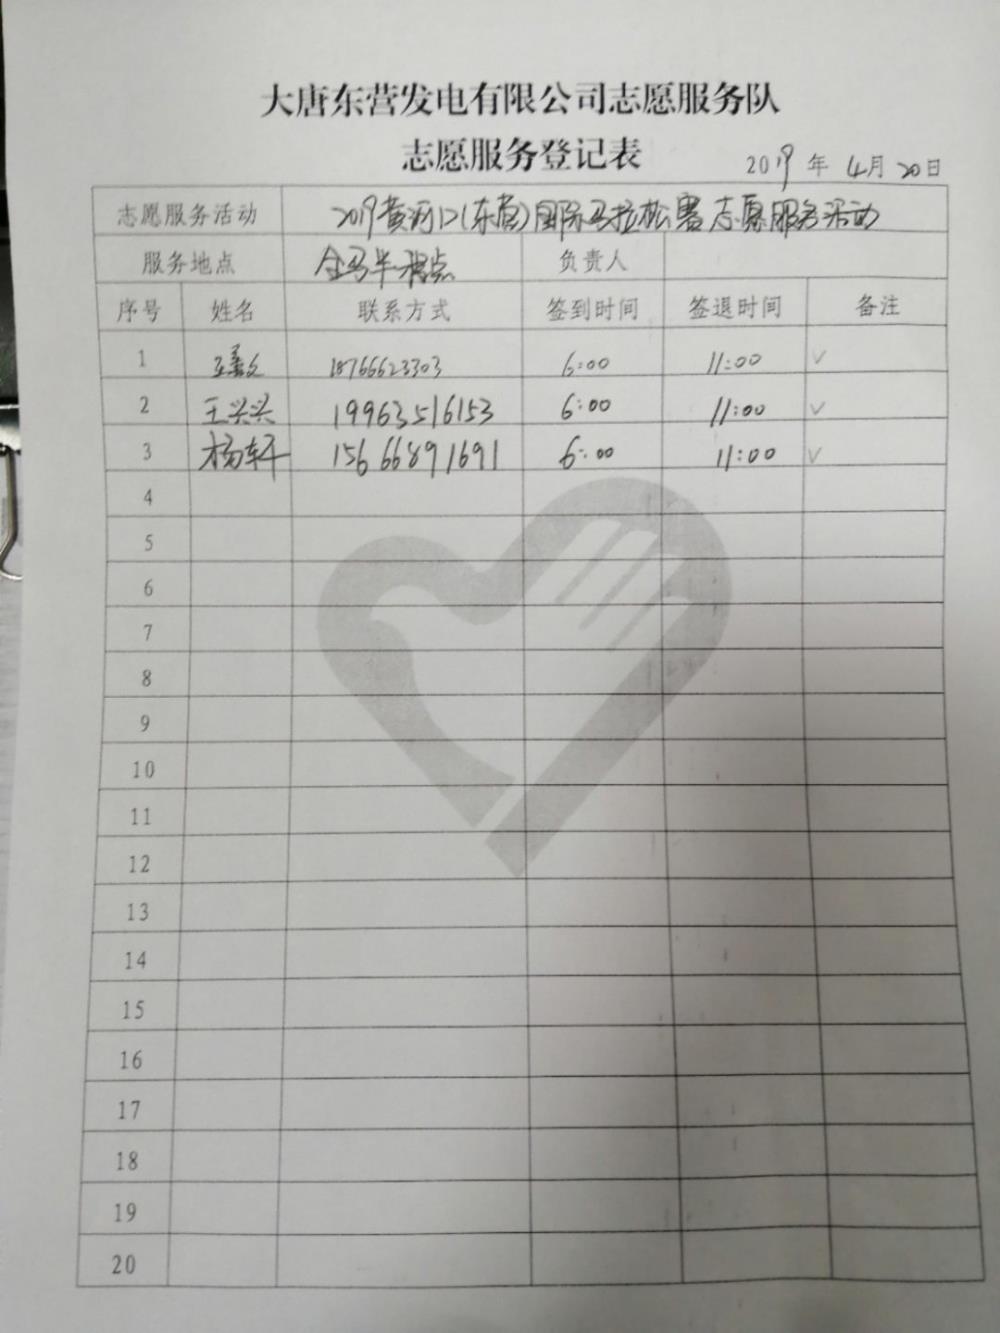 大唐东营发电有限公司志愿服务队
志愿服务登记表
2019 年 4月 20日
志愿服务活动 2019黄河口(东营)国际马拉松赛志愿服务活动
服务地点 全马半程点 负责人
序号 姓名 联系方式 签到时间 签退时间 备注
1 18766623303 6:00 11:00 ✓
2 王兴兴 19963516153 6:00 11:00 ✓
3 杨轩 15666891691 6:00 11:00 ✓
4
5
6
7
8
9
10
11
12
13
14
15
16
17
18
19
20